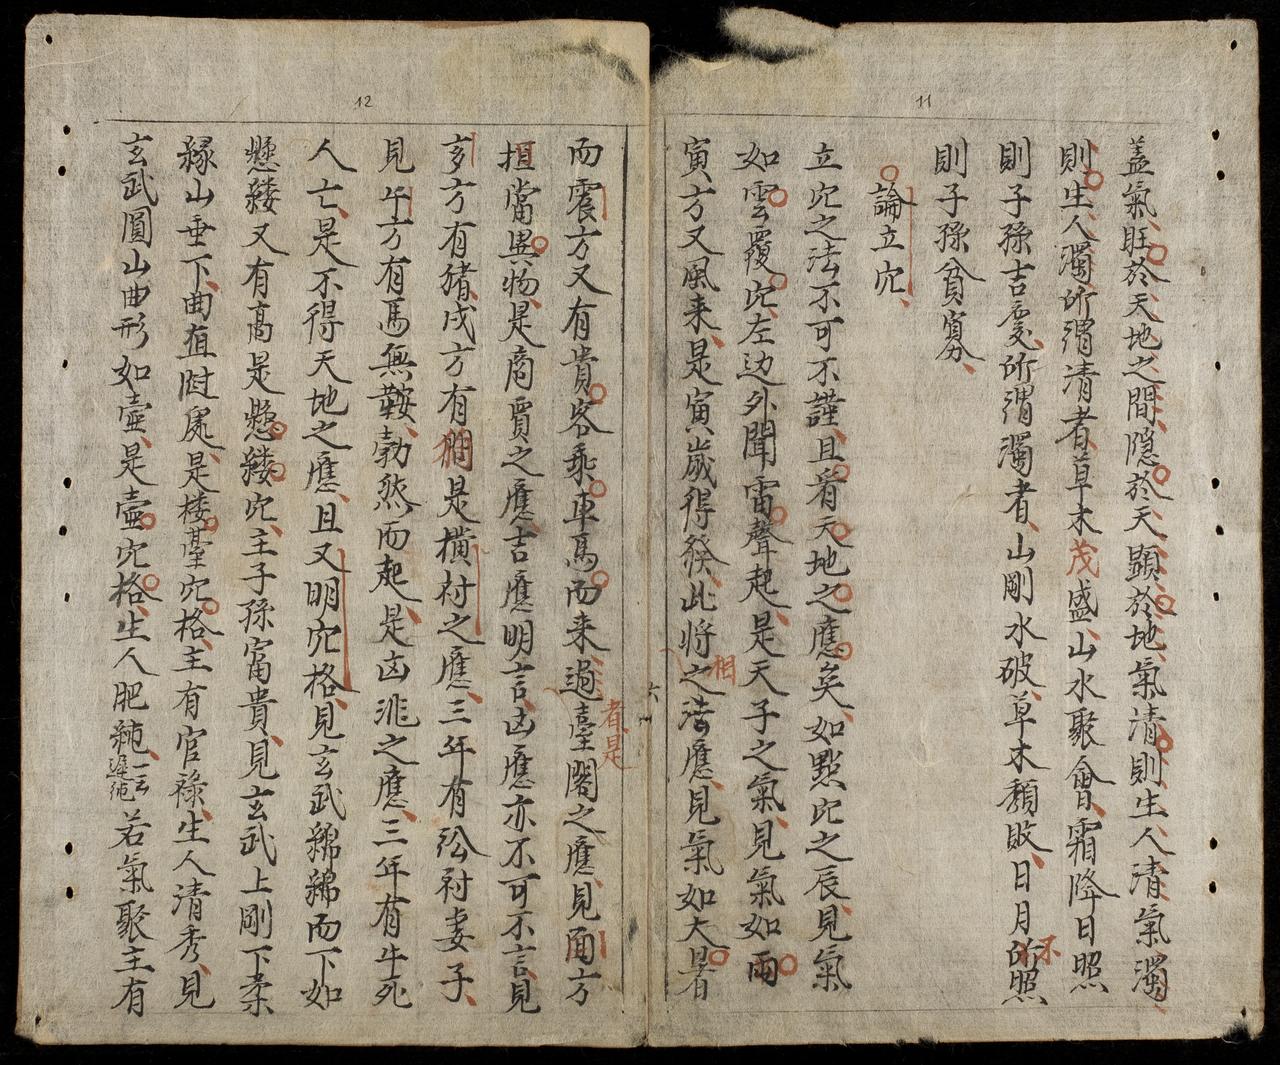 11
盖氣旺於天地之間隐於天顕於地氣清則生人清氣濁
則生人濁所謂清者草木茂盛山水聚會霜降日照
則子孫吉慶所謂濁者山剛水破草木頹敗日月不照
則子孫貧窮
論立穴
立穴之法不可不謹且看天地之應矣如點穴之辰見氣
如雲覆穴左边外聞雷聲起是天子之氣見氣如雨
寅方又風来是寅歲得發此將相之法應見氣如大暑
六
12
而震方又有貴客乘車馬而来過者是臺閣之應見酉方
担當異物是商賈之應吉應明言凶應亦不可不言見
亥方有猪戌方有是橫村之應三年有訟妻子
見午方有馬無鞍勃然而起是凶之應三年有牛死
人亡是不得天地之應且又明穴格見玄武綿綿而下如
懸縷又有高是懸縷穴主子孫富貴見玄武上剛下柔
縁山垂下曲直處是楼臺穴格主有官祿生人清秀見
玄武圓山曲形如壺是壺穴格生人肥純一云遲純若氣聚主有